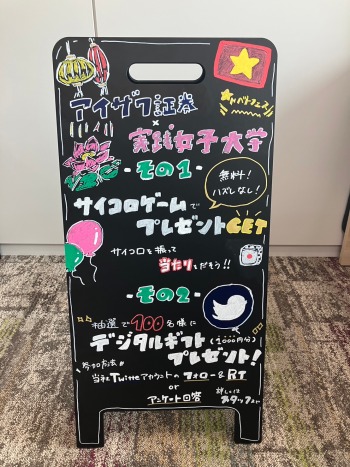 アイザワ証券
×
実践女子大学
ベトナムフェス
-その1-
無料!
ハズレなし!
サイコロゲームで
プレゼントGET
サイコロを振って
当たりをだそう!!
-その2-
抽選で100名様に
デジタルギフト(1000円分)
プレゼント!
参加方法
当社Twitterアカウントのフォロー&RT
or
アンケート回答
詳しくは
スタッフまで